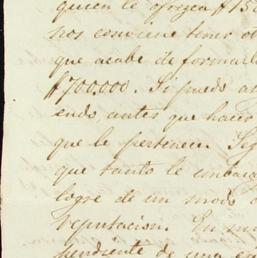 quien le ofrezca $150
nos conviene tener
que acabe de formar
$700.000. Si puedo
endo antes que hacer
que le pertenece. Seg
que tanto le
logre de un modo
reputacion. En mi
pendiente de una